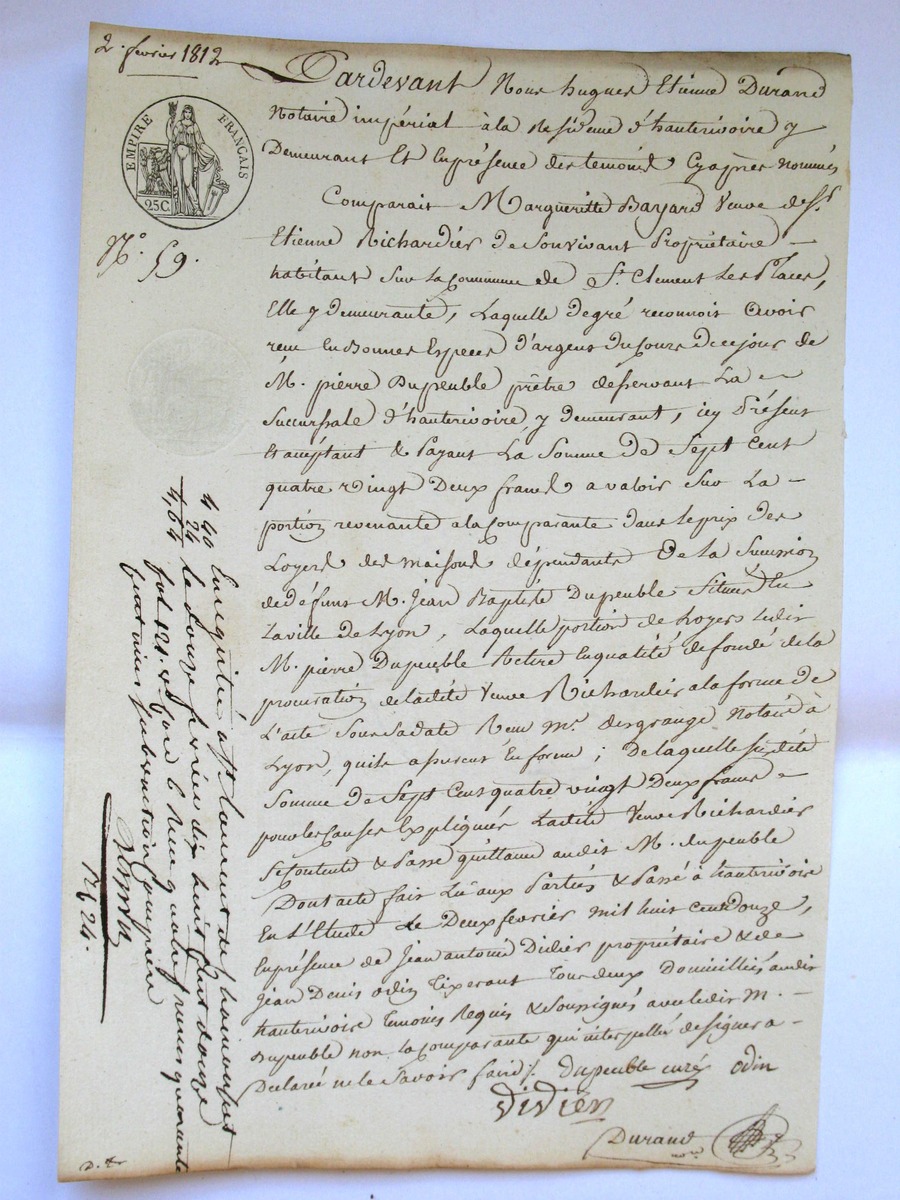 2. fevrier 1812
EMPIRE FRANÇAIS
25C.
N.º 59.
Pardevant Nous hugues Etienne Durand
Notaire impérial à la Residence d'hauterivoire y
Demeurant Et En présence des temoins Cy après nommés
Comparait Margueritte Bayard Veuve de S.r
Etienne Richardier de Son vivant Propriétaire
habitant Sur la Commune de S.t Clement Les Places,
Elle y demeurante, Laquelle de gré reconnoit avoir
recu En Bonnes Especes d'argent du Cours de ce jour de
M. pierre Dupeuble prêtre désservant La
Succursale d'hauterivoire, y demeurant, icy Présent
acceptant & Payant La Somme de Sept Cent
quatre Vingt Deux francs a valoir Sur La
portion revenante a la Comparante dans le prix des
Loyers des maisons dépendantes De la Succession
de défunt M. Jean Baptiste Dupeuble Situées En
La ville de Lyon, Laquelle portion de Loyers Ledit
M. pierre Dupeuble Retire En qualité de fondé de la
procuration de ladite Veuve Richardier a la forme de
L'acte Sous Sa date Recu M.e desgrange Notaire à
Lyon, qu'ils assurent En forme ; De laquelle susdite
Somme de Sept Cent quatre vingt Deux francs
pour les Causes Expliquées Ladite Veuve Richardier
Se Contente & Passe quittance audit M. dupeuble
Dont acte fait Lu aux Parties & Passé à hauterivoire
En L'Etude Le Deux fevrier mil huit Cent Douze,
En présence de Jean antoine Didier propriétaire & de
Jean Denis odin Tixerant Tous deux Domiciliés audit
hauterivoire Temoins Requis & Soussignés avec ledit M.
Dupeuble non la Comparante qui interpellée de signer a
Declaré ne le Savoir faire /. Dupeuble curé odin
Didier
Durand
n.re
Enregistré à S.t laurent de chamousset
le douze fevrier dix huit cent douze
fol. 121. Recu quatre francs quarante
centimes subvention comprise
4 40
24
4,64
R. 24.